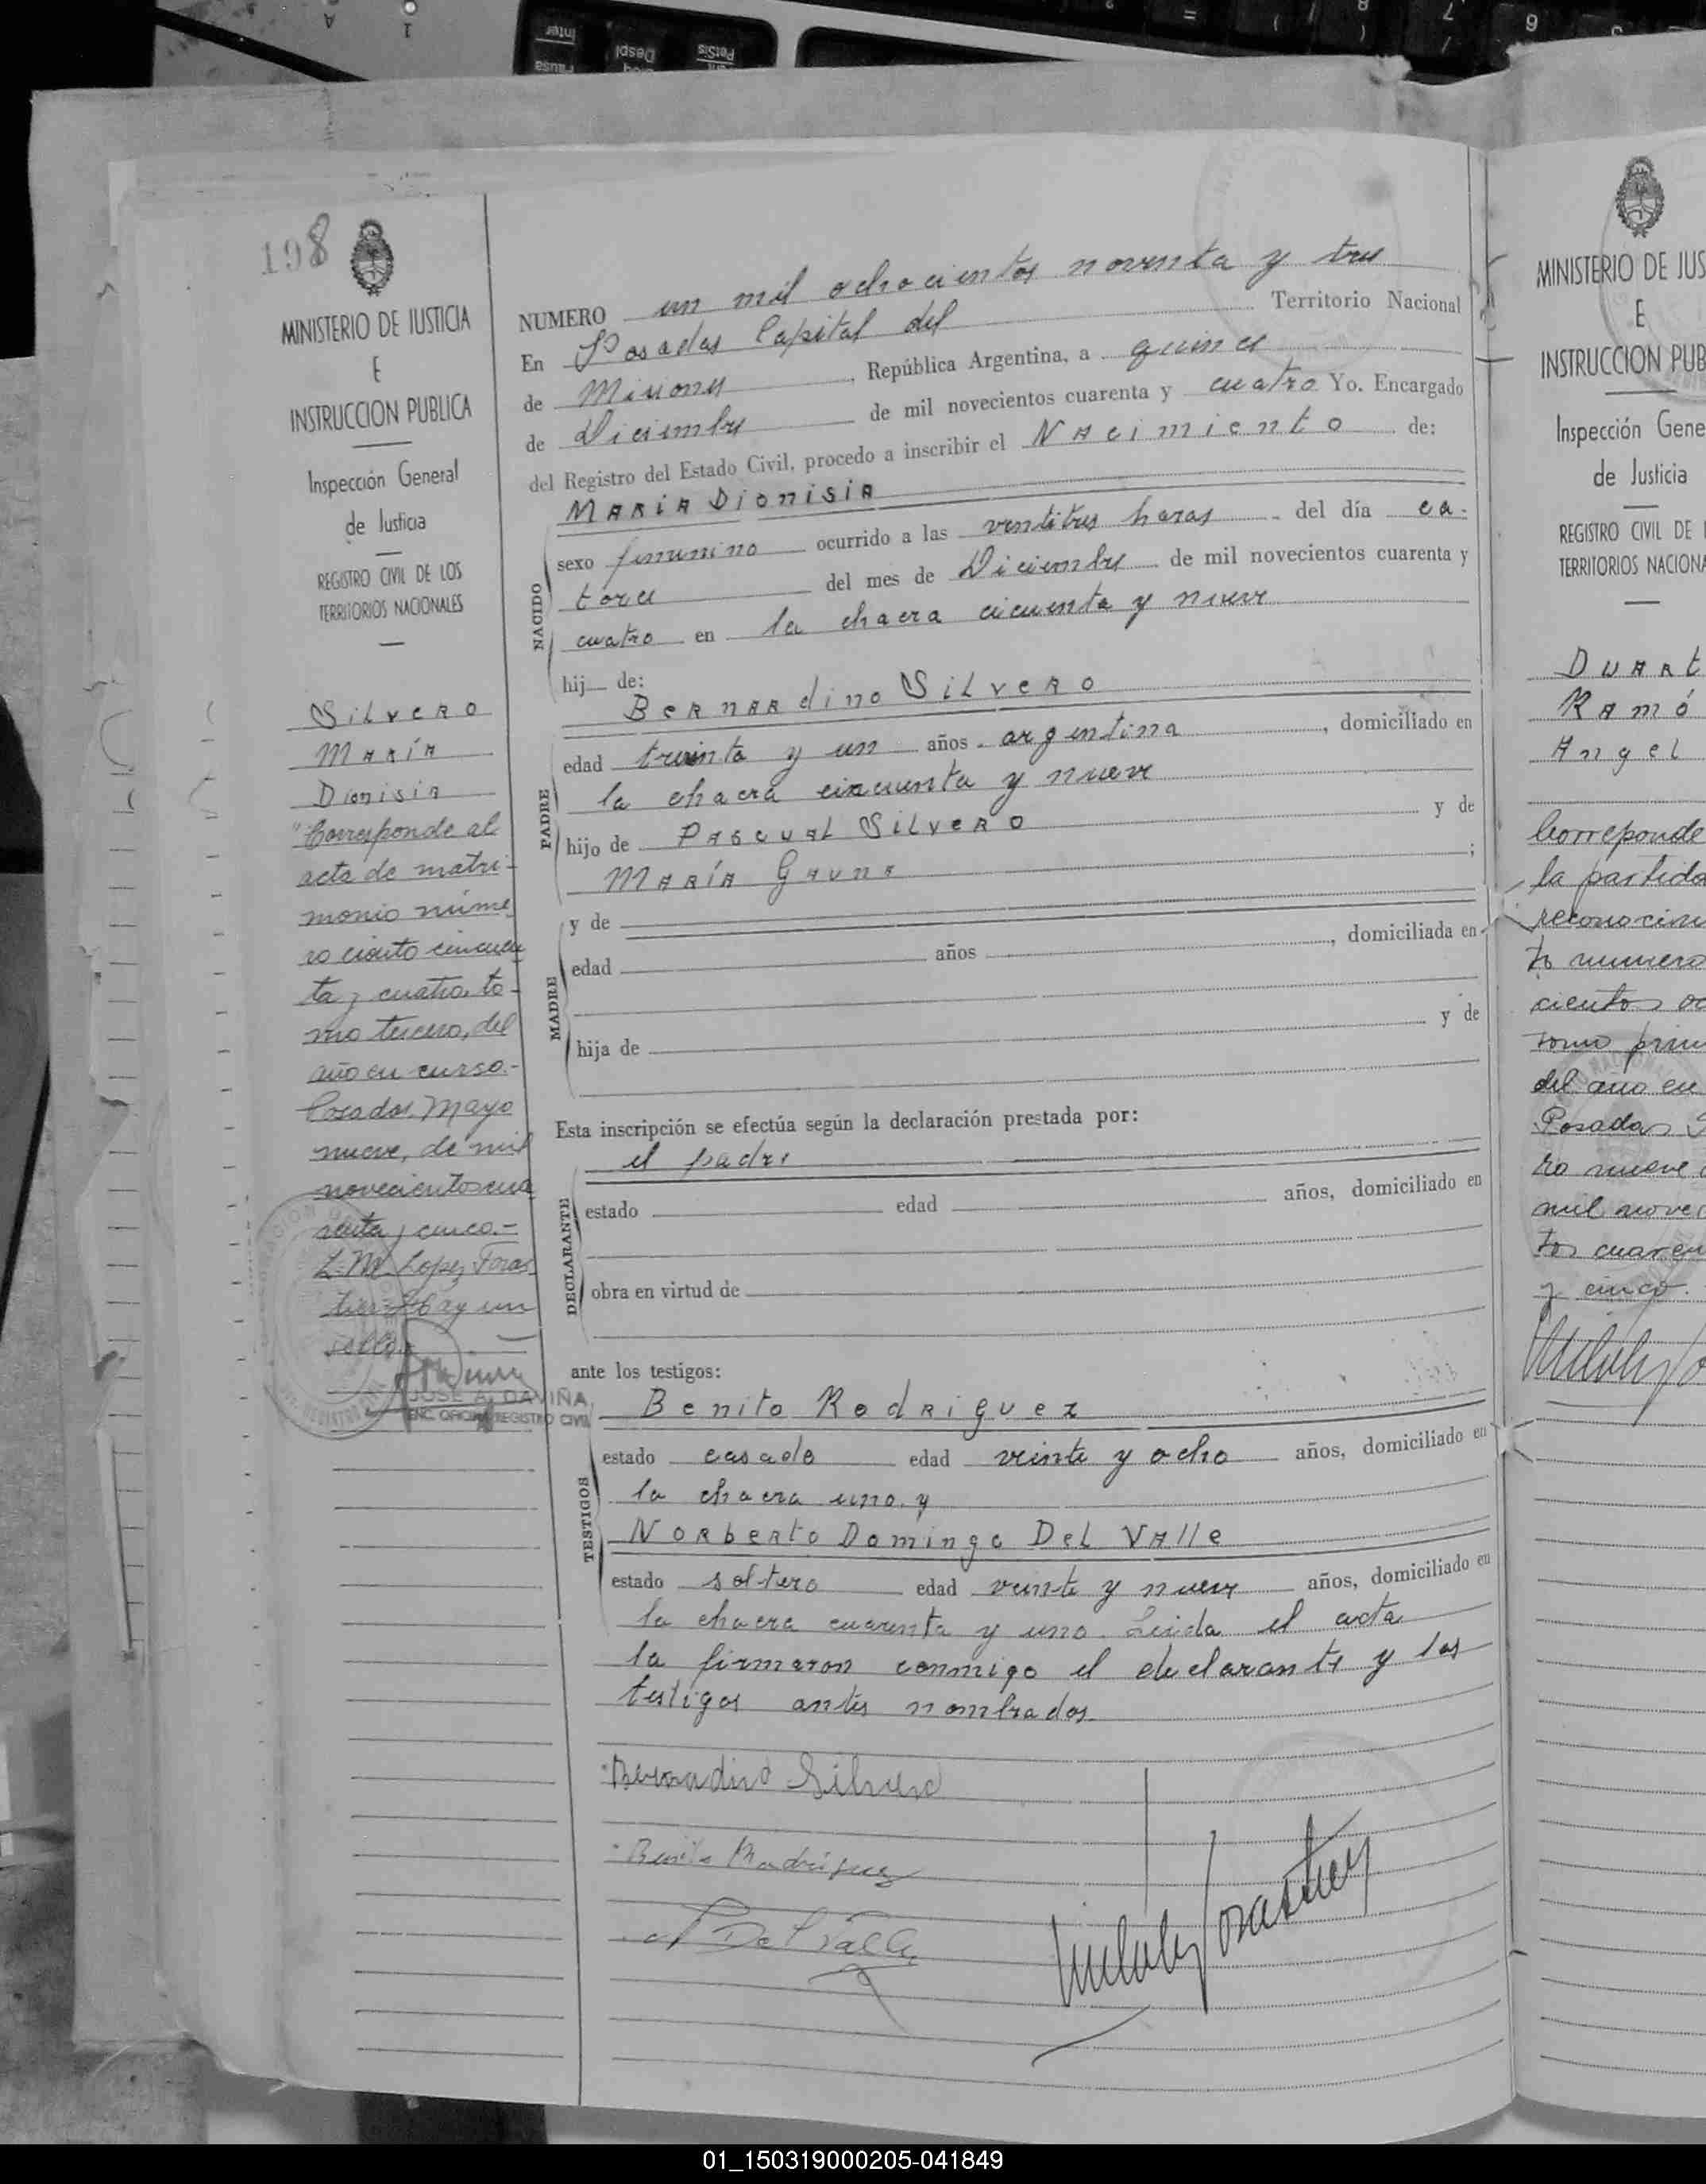 198
MINISTERIO DE JUSTICIA
E
INSTRUCCION PUBLICA
Inspección General
de Justicia
REGISTRO CIVIL DE LOS
TERRITORIOS NACIONALES
Silvero
María
Dionisia
"Corresponde al
acta de matri-
monio núme
ro ciento cincuen
ta y cuatro, to-
mo tercero, del
año en curso.-
Posadas, Mayo
nueve, de mil
novecientos cua
renta y cinco.-
L. M. Lopez Foras
tier - Hay un
sello.
JOSE A. DAVIÑA
ENC. OFICINA REGISTRO CIVIL
NUMERO un mil ochocientos noventa y tres
En Posadas Capital del Territorio Nacional
de Misiones, República Argentina, a quince
de Diciembre de mil novecientos cuarenta y cuatro Yo. Encargado
del Registro del Estado Civil, procedo a inscribir el Nacimiento de:
NACIDO
María Dionisia
sexo femenino ocurrido a las ventitres horas del día ca-
torce del mes de Diciembre de mil novecientos cuarenta y
cuatro en la chacra cicuenta y nueve
hij de:
PADRE
Bernardino Silvero
edad treinta y un años argentina, domiciliado en
la chacra cincuenta y nueve
hijo de Pascual Silvero y de
María Gauna;
MADRE
y de
edad años, domiciliada en
hija de y de
Esta inscripción se efectúa según la declaración prestada por:
DECLARANTE
el padre
estado edad años, domiciliado en
obra en virtud de
ante los testigos:
TESTIGOS
Benito Rodriguez
estado casado edad veinte y ocho años, domiciliado en
la chacra uno y
Norberto Domingo Del Valle
estado soltero edad veinte y nueve años, domiciliado en
la chacra cuarenta y uno. Leida el acta
la firmaron conmigo el declarante y los
testigos antes nombrados
Bernadino Silvero
Benito Rodriguez
N Del Valle
MINISTERIO DE JUS
E
INSTRUCCION PUB
Inspección Gene
de Justicia
REGISTRO CIVIL DE
TERRITORIOS NACIONA
Duart
Ramó
Angel
Correponde
la partida
reconocim
to numero
cientos oc
tomo prim
del año en
Posadas
ro nueve
mil novec
tos cuaren
y cinco.
01_150319000205-041849